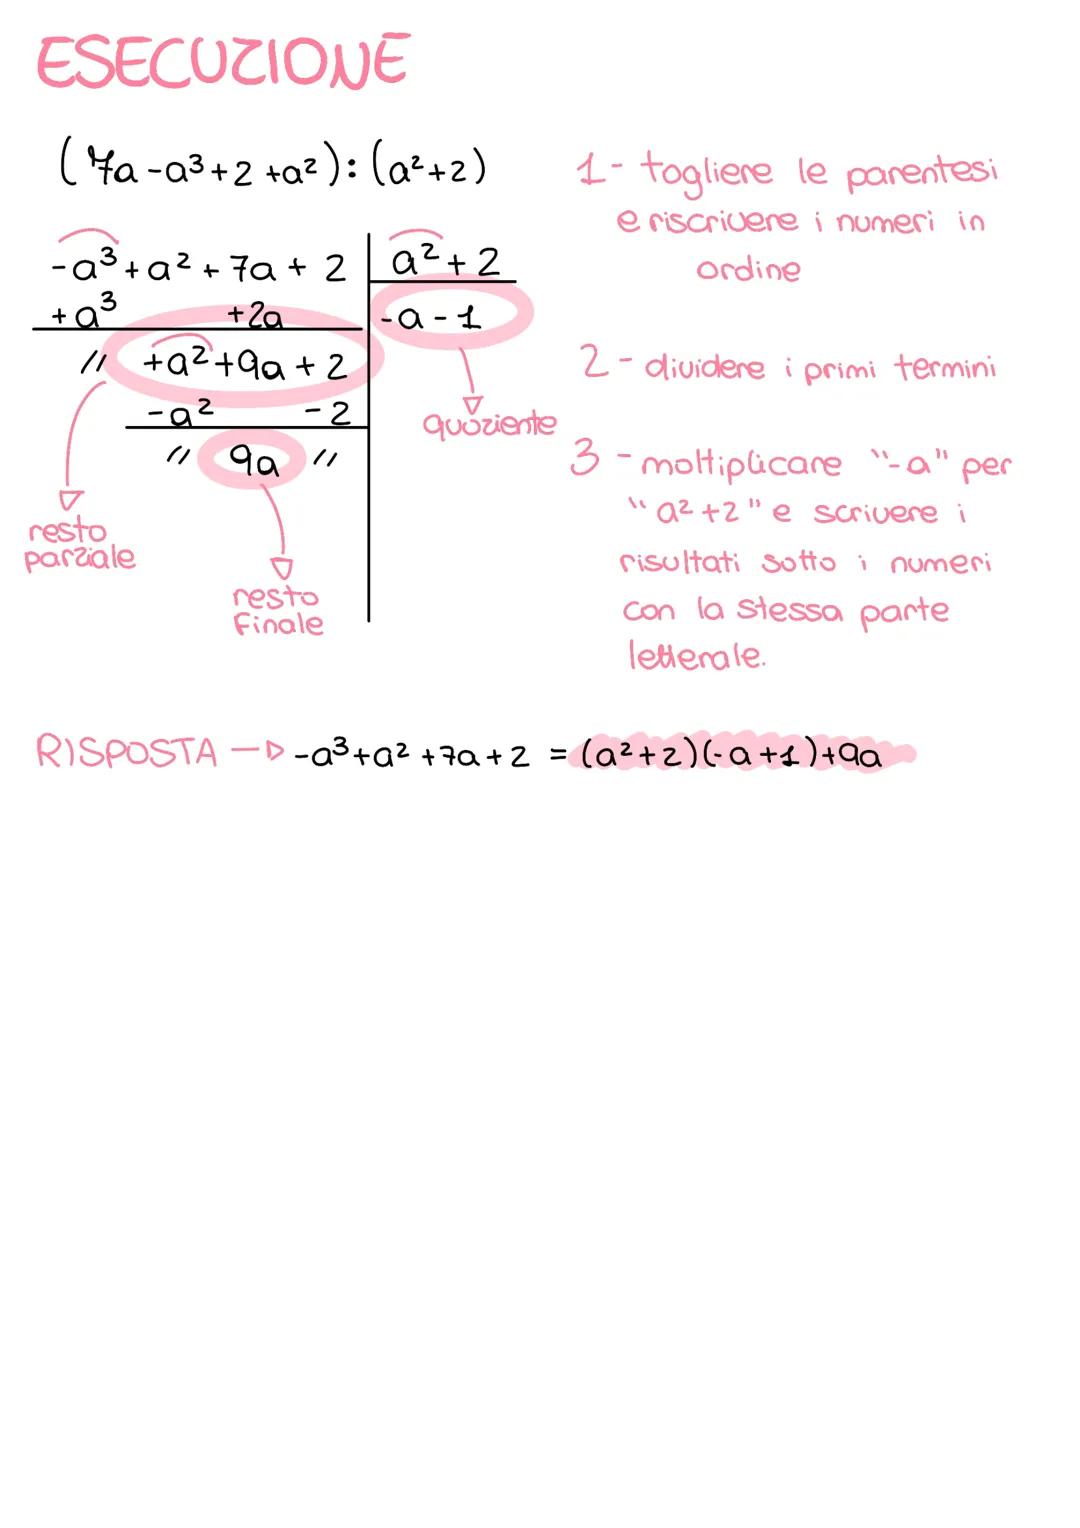 ESECUZIONE
(7a-a³+2+a²):(a²+2)
-a³+a²+7a+2 a²+2
+a³ +2a -a-1
// +a²+9a+2
-a² -2
// 9a //
quoziente
resto
parziale
resto
finale
1- togliere le parentesi
e riscrivere i numeri in
ordine
2- dividere i primi termini
3- moltiplicare "-a" per
"a²+2" e scrivere i
risultati sotto i numeri
con la stessa parte
letterale.
RISPOSTA → -a³+a²+7a+2 = (a²+2)(-a+1)+9a